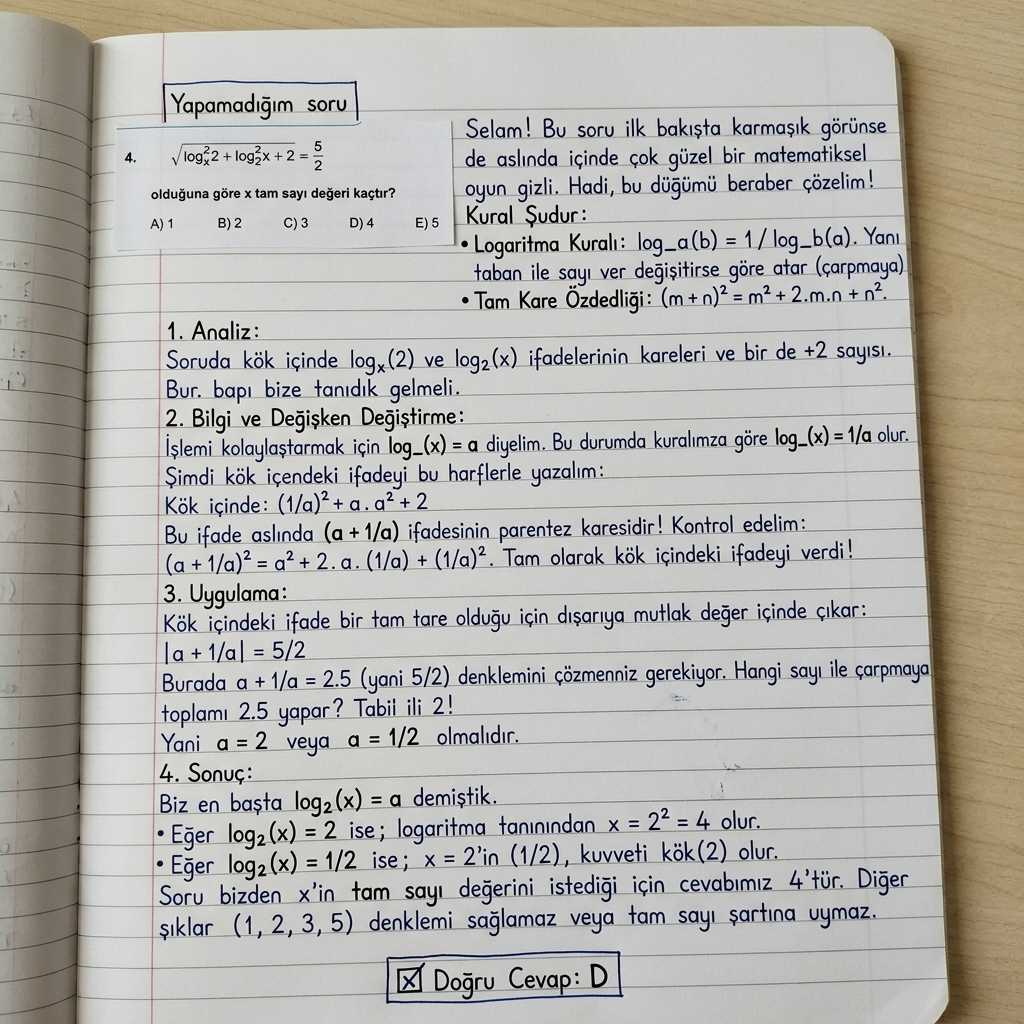 Yapamadığım soru
4. √log²ₓ2 + log²₂x + 2 = 5/2
olduğuna göre x tam sayı değeri kaçtır?
A) 1 B) 2 C) 3 D) 4 E) 5
Selam! Bu soru ilk bakışta karmaşık görünse
de aslında içinde çok güzel bir matematiksel
oyun gizli. Hadi, bu düğümü beraber çözelim!
Kural Şudur:
• Logaritma Kuralı: log_a(b) = 1/log_b(a). Yanı
taban ile sayı ver değişitirse göre atar (çarpmaya)
• Tam Kare Özdedliği: (m + n)² = m² + 2.m.n + n².
1. Analiz:
Soruda kök içinde logₓ(2) ve log₂(x) ifadelerinin kareleri ve bir de +2 sayısı.
Bur. bapı bize tanıdık gelmeli.
2. Bilgi ve Değişken Değiştirme:
İşlemi kolaylaştarmak için log_(x) = a diyelim. Bu durumda kuralımza göre log_(x) = 1/a olur.
Şimdi kök içendeki ifadeyi bu harflerle yazalım:
Kök içinde: (1/a)² + a . a² + 2
Bu ifade aslında (a + 1/a) ifadesinin parentez karesidir! Kontrol edelim:
(a + 1/a)² = a² + 2. a. (1/a) + (1/a)². Tam olarak kök içindeki ifadeyi verdi!
3. Uygulama:
Kök içindeki ifade bir tam tare olduğu için dışarıya mutlak değer içinde çıkar:
|a + 1/a| = 5/2
Burada a + 1/a = 2.5 (yani 5/2) denklemini çözmenniz gerekiyor. Hangi sayı ile çarpmaya
toplamı 2.5 yapar? Tabil ili 2!
Yani a = 2 veya a = 1/2 olmalıdır.
4. Sonuç:
Biz en başta log₂(x) = a demiştik.
• Eğer log₂(x) = 2 ise; logaritma tanınından x = 2² = 4 olur.
• Eğer log₂(x) = 1/2 ise; x = 2'in (1/2), kuvveti kök(2) olur.
Soru bizden x'in tam sayı değerini istediği için cevabımız 4'tür. Diğer
şıklar (1, 2, 3, 5) denklemi sağlamaz veya tam sayı şartına uymaz.
☒ Doğru Cevap: D